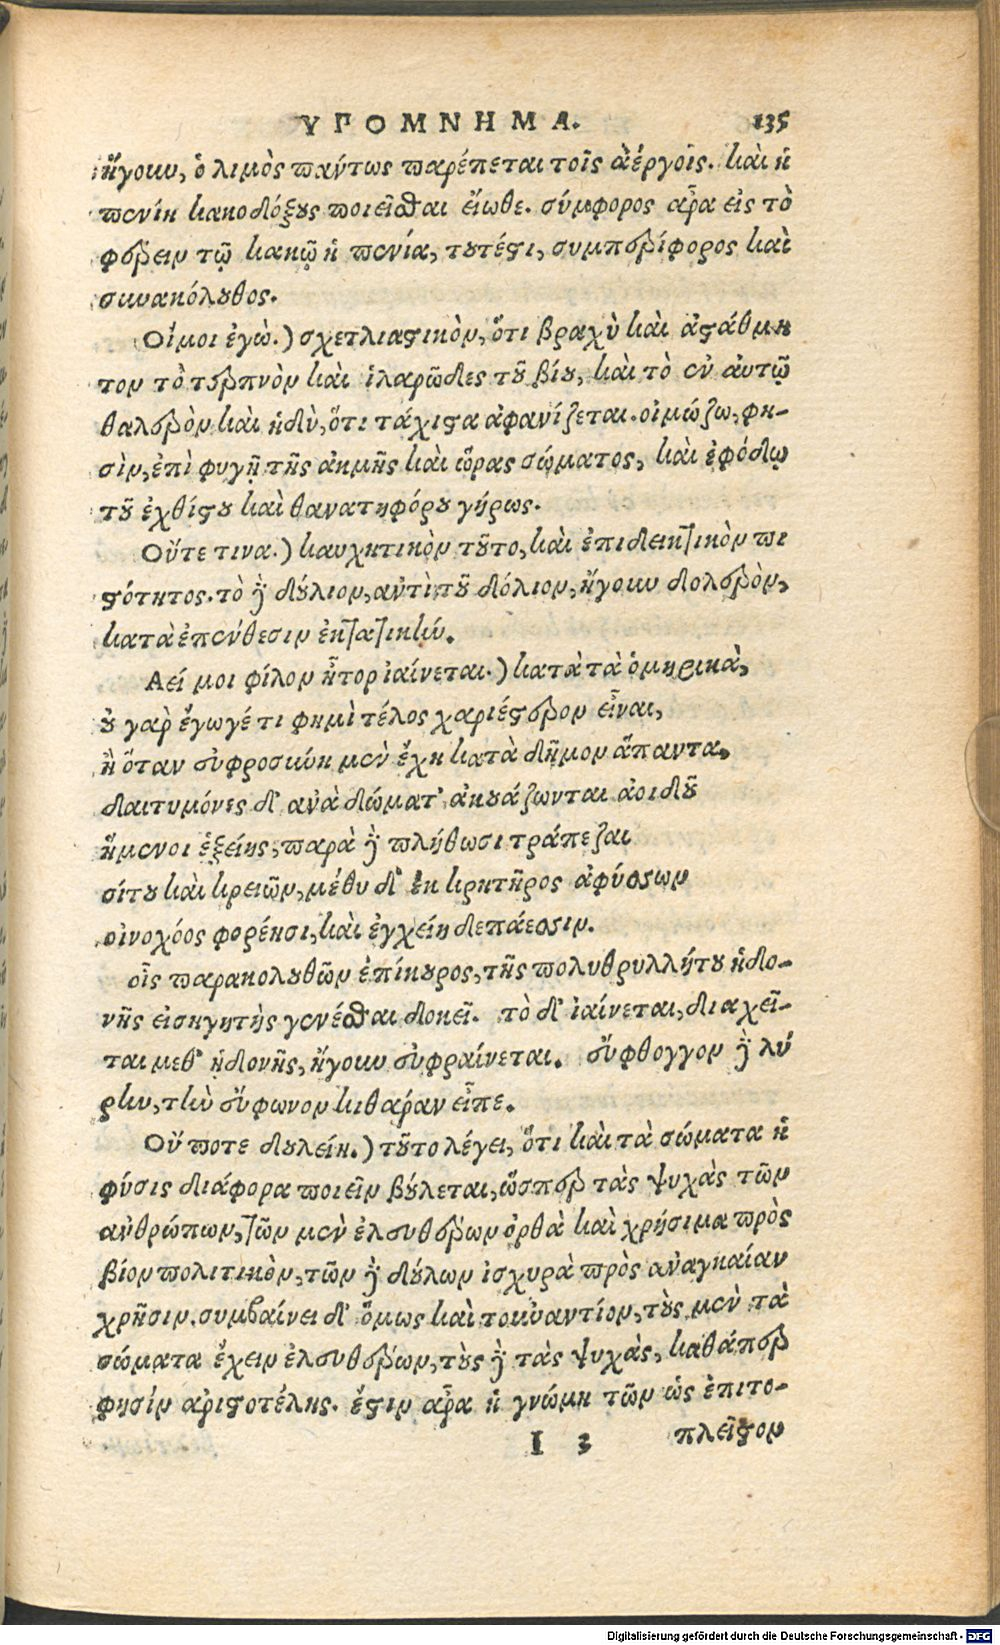 ΥΠΟΜΝΗΜΑ. 135
ἤγουν, ὁ λιμὸς πάντως παρέπεται τοῖς ἀέργοις. καὶ ἡ
πενίη κακοδόξους ποιεῖσθαι εἴωθε. σύμφορος ἆρα εἰς τὸ
φέρειν τῷ κακῷ ἡ πενία, τουτέστι, συμπερίφορος καὶ
συνακόλουθος.
Οἴμοι ἐγὼ.) σχετλιαστικὸν, ὅτι βραχὺ καὶ ἀστάθμη
τον τὸ τερπνὸν καὶ ἱλαρῶδες τοῦ βίου, καὶ τὸ ἐν αὐτῷ
θαλερὸν καὶ ἡδὺ, ὅτι τάχιστα ἀφανίζεται. οἰμώζω, φη-
σὶν, ἐπὶ φυγῇ τῆς ἀκμῆς καὶ ὥρας σώματος, καὶ ἐφόδῳ
τοῦ ἐχθίστου καὶ θανατηφόρου γήρως.
Οὔτε τινα.) καυχητικὸν τοῦτο, καὶ ἐπιδεικτικὸν πι
στότητος. τὸ δὲ δούλιον, ἀντὶ τοῦ δόλιον, ἤγουν δολερὸν,
κατὰ ἐπένθεσιν ἐκτατικήν.
Αεί μοι φίλον ἦτορ ἰαίνεται.) κατὰ τὰ ὁμηρικὰ,
οὐ γὰρ ἔγωγέ τι φημὶ τέλος χαριέστερον εἶναι,
ἢ ὅταν εὐφροσύνη μὲν ἔχη κατὰ δῆμον ἅπαντα,
δαιτυμόνες δ' ἀνὰ δώματ' ἀκουάζωνται ἀοιδοῦ
ἥμενοι ἑξείης, παρὰ δὲ πλήθωσι τράπεζαι
σίτου καὶ κρειῶν, μέθυ δ' ἐκ κρητῆρος ἀφύσσων
οἰνοχόος φορέησι, καὶ ἐγχείη δεπάεσσιν.
οἷς παρακολουθῶν ἐπίκουρος, τῆς πολυθρυλλήτου ἡδο-
νῆς εἰσηγητὴς γενέσθαι δοκεῖ. τὸ δ' ἰαίνεται, διαχεῖ-
ται μεθ' ἡδονῆς, ἤγουν εὐφραίνεται. εὔφθογγον δὲ λύ
ρην, τὴν εὔφωνον κιθαράν εἶπε.
Οὔ ποτε δουλείη.) τοῦτο λέγει, ὅτι καὶ τὰ σώματα ἡ
φύσις διάφορα ποιεῖν βούλεται, ὥσπερ τὰς ψυχὰς τῶν
ἀνθρώπων, τῶν μὲν ἐλευθέρων ὀρθὰ καὶ χρήσιμα πρὸς
βίον πολιτικὸν, τῶν δὲ δούλων ἰσχυρὰ πρὸς ἀναγκαίαν
χρῆσιν. συμβαίνει δ' ὅμως καὶ τοὐναντίον, τοὺς μὲν τὰ
σώματα ἔχειν ἐλευθέρων, τοὺς δὲ τὰς ψυχὰς, καθάπερ
φησίν ἀριστοτέλης. ἔστιν ἆρα ἡ γνώμη τῶν ὡς ἐπιτο-
I 3 πλεῖστον
Digitalisierung gefördert durch die Deutsche Forschungsgemeinschaft - DFG